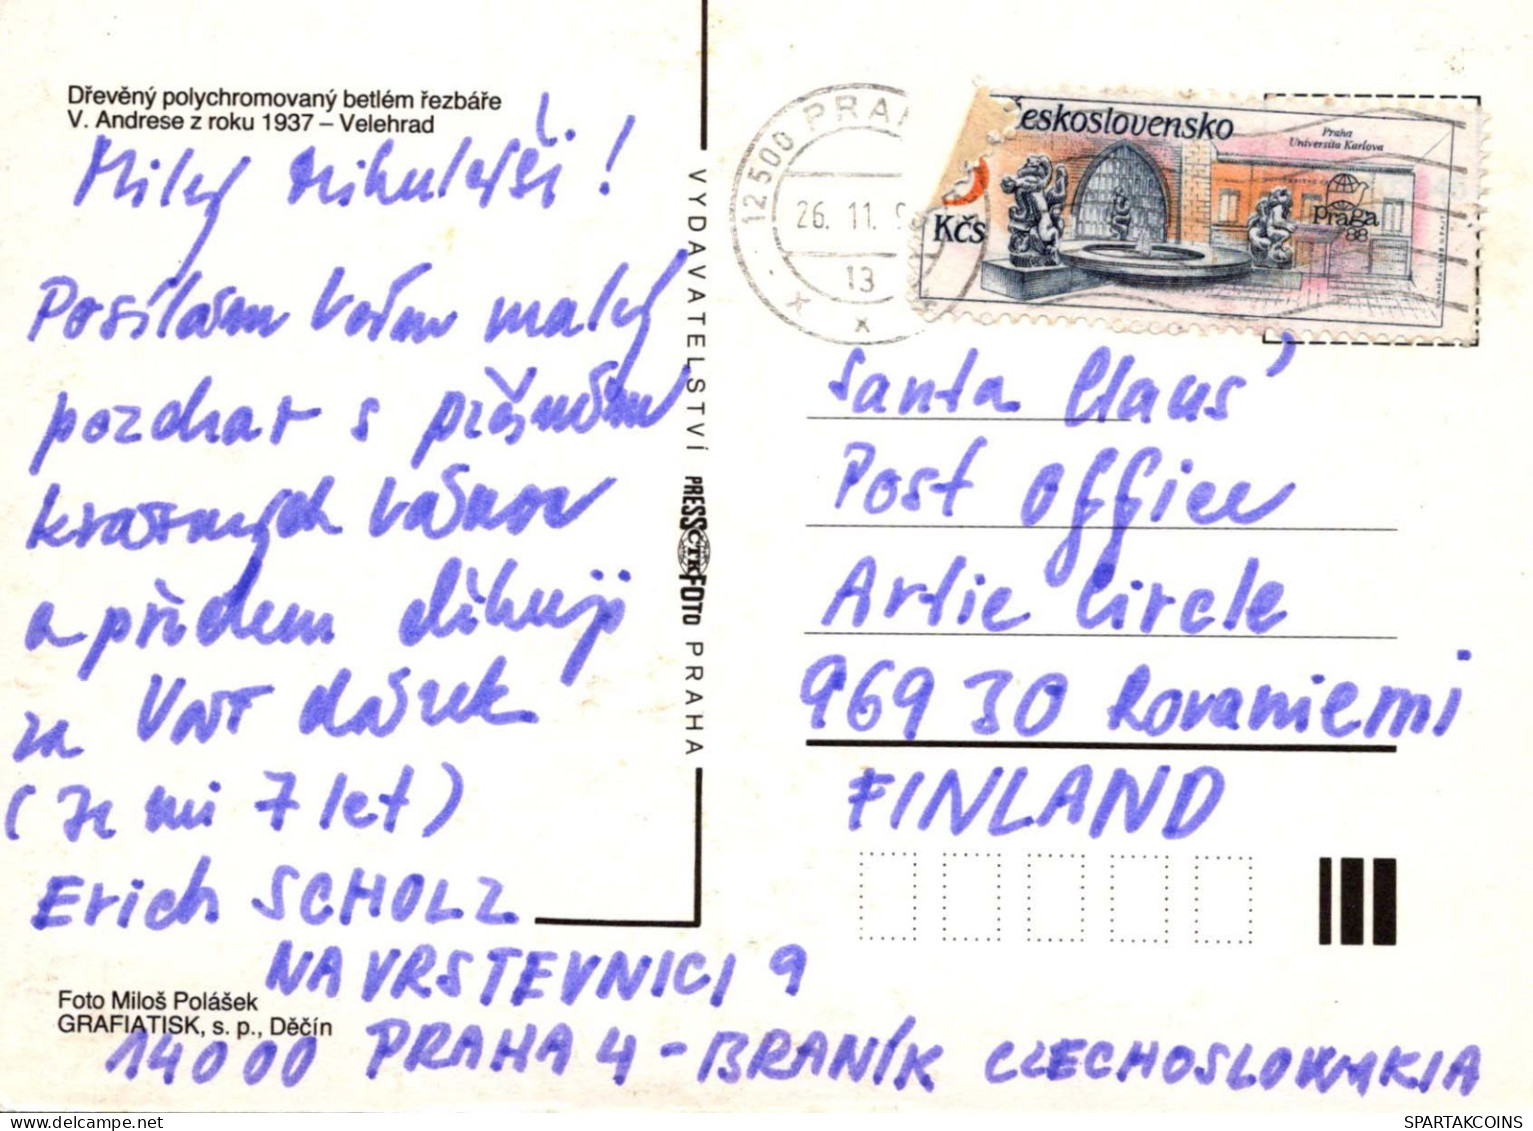 Dřevěný polychromovaný betlém řezbáře
V. Andrese z roku 1937 – Velehrad
Milý Mikuláši!
Posílám Vám malý
pozdrav s přáním
krásných Vánoc
a předem děkuji
za Váš dárek
(Je mi 7 let)
Erich SCHOLZ
NA VRSTEVNICI 9
14000 PRAHA 4 - BRANÍK CZECHOSLOVAKIA
Foto Miloš Polášek
GRAFIATISK, s. p., Děčín
VYDAVATELSTVÍ PRESSFOTO PRAHA
ČTK
12500 PRAH
26. 11. 9
13
Československo
Praha
Universita Karlova
Kčs
Praga
88
Santa Claus'
Post Office
Artic Circle
96930 Rovaniemi
FINLAND
SPARTAKCOINS